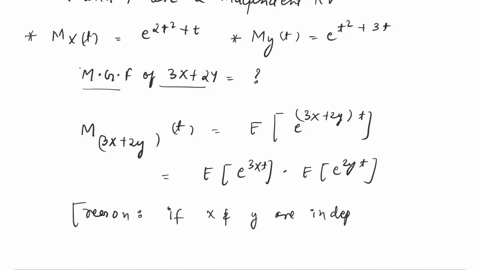 * M_X(t) = e^{2t²+t}   * M_y(t) = e^{t²+3t}
M.G.F of 3X+2Y = ?
M_(3X+2y) (t) = E[e^{(3x+2y)t}]
= E[e^{3xt}] · E[e^{2yt}]
[reason: if x & y are indep